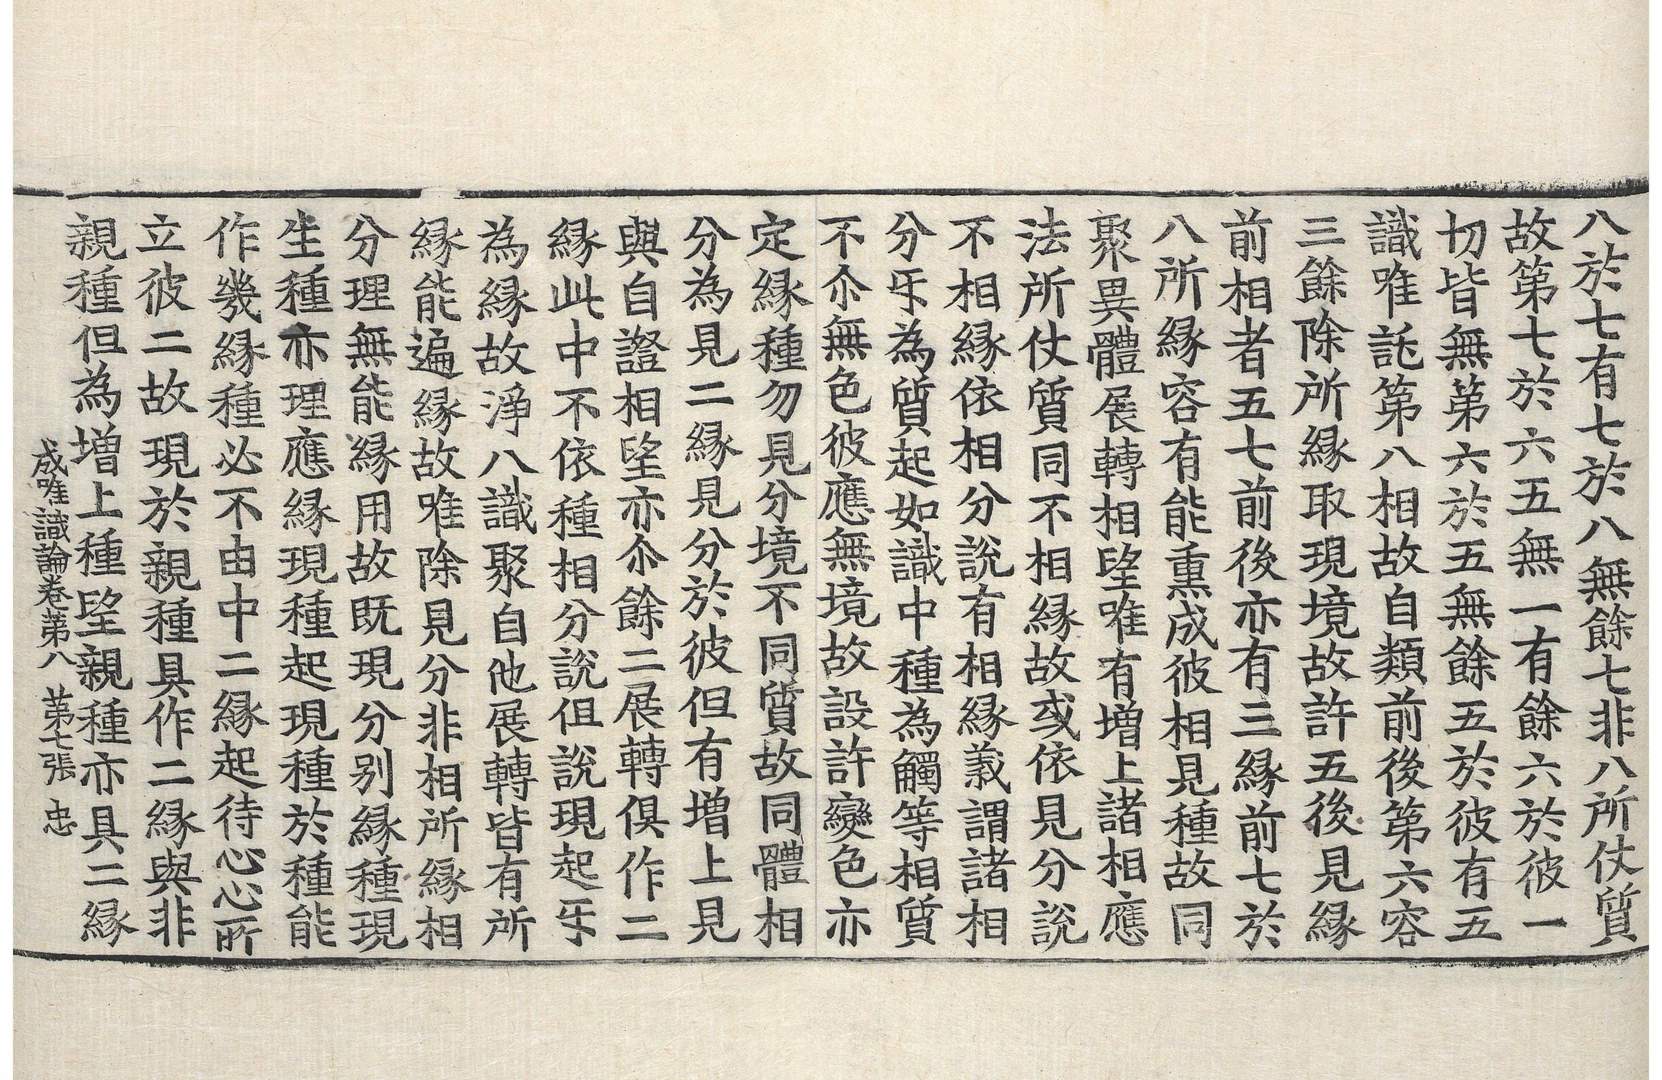 八於七有七於八無餘七非八所仗質
故第七於六五無一有餘六於彼一
切皆無第六於五無餘五於彼有五
識唯託第八相故自類前後第六容
三餘除所緣取現境故許五後見緣
前相者五七前後亦有三緣前七於
八所緣容有能熏成彼相見種故同
聚異體展轉相望唯有增上諸相應
法所仗質同不相緣故或依見分說
不相緣依相分說有相緣義謂諸相
分㸦為質起如識中種為觸等相質
不尒無色彼應無境故設許變色亦
定緣種勿見分境不同質故同體相
分為見二緣見分於彼但有增上見
與自證相望亦尒餘二展轉俱作二
緣此中不依種相分說但說現起㸦
為緣故淨八識聚自他展轉皆有所
緣能遍緣故唯除見分非相所緣相
分理無能緣用故既現分別緣種現
生種亦理應緣現種起現種於種能
作幾緣種必不由中二緣起待心心所
立彼二故現於親種具作二緣與非
親種但為增上種望親種亦具二緣
成唯識論卷第八 第七張 忠